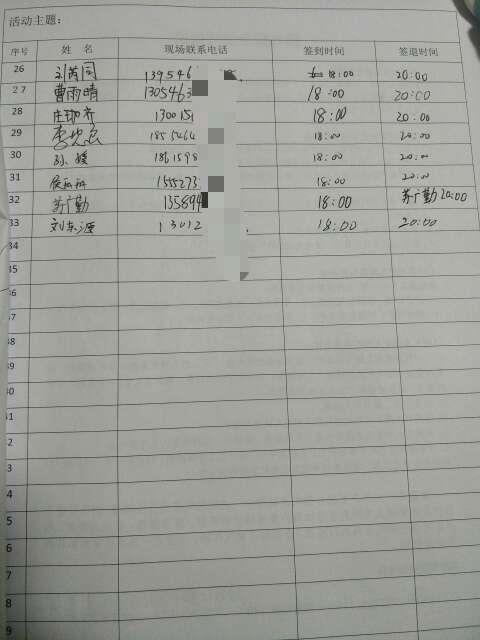 活动主题：
序号 姓 名 现场联系电话 签到时间 签退时间
26 刘芮同 139546 18:00 20:00
27 曹雨晴 1305463 18:00 20:00
28 130015 18:00 20:00
29 1855464 18:00 20:00
30 孙媛 1861598 18:00 20:00
31 1555273 18:00 20:00
32 苏广勤 135894 18:00 苏广勤 20:00
33 刘东源 13012 18:00 20:00
34
35
36
37
38
39
40
41
2
3
4
5
6
7
8
9